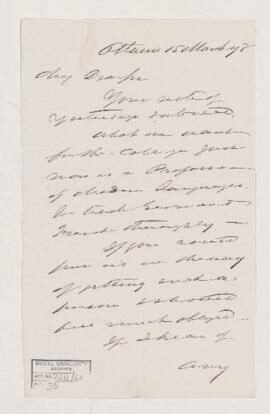 Ottawa 15 March 78
My Dear Sir
Your note of
yesterday
What we want
for the College just
now is a Professor
of Modern Languages,
to teach German &
French thoroughly —
If you could
put us in the way
of getting such a
person I should
feel much obliged
If I hear of
any
McGILL UNIVERSITY
ARCHIVES
ACC. NO.